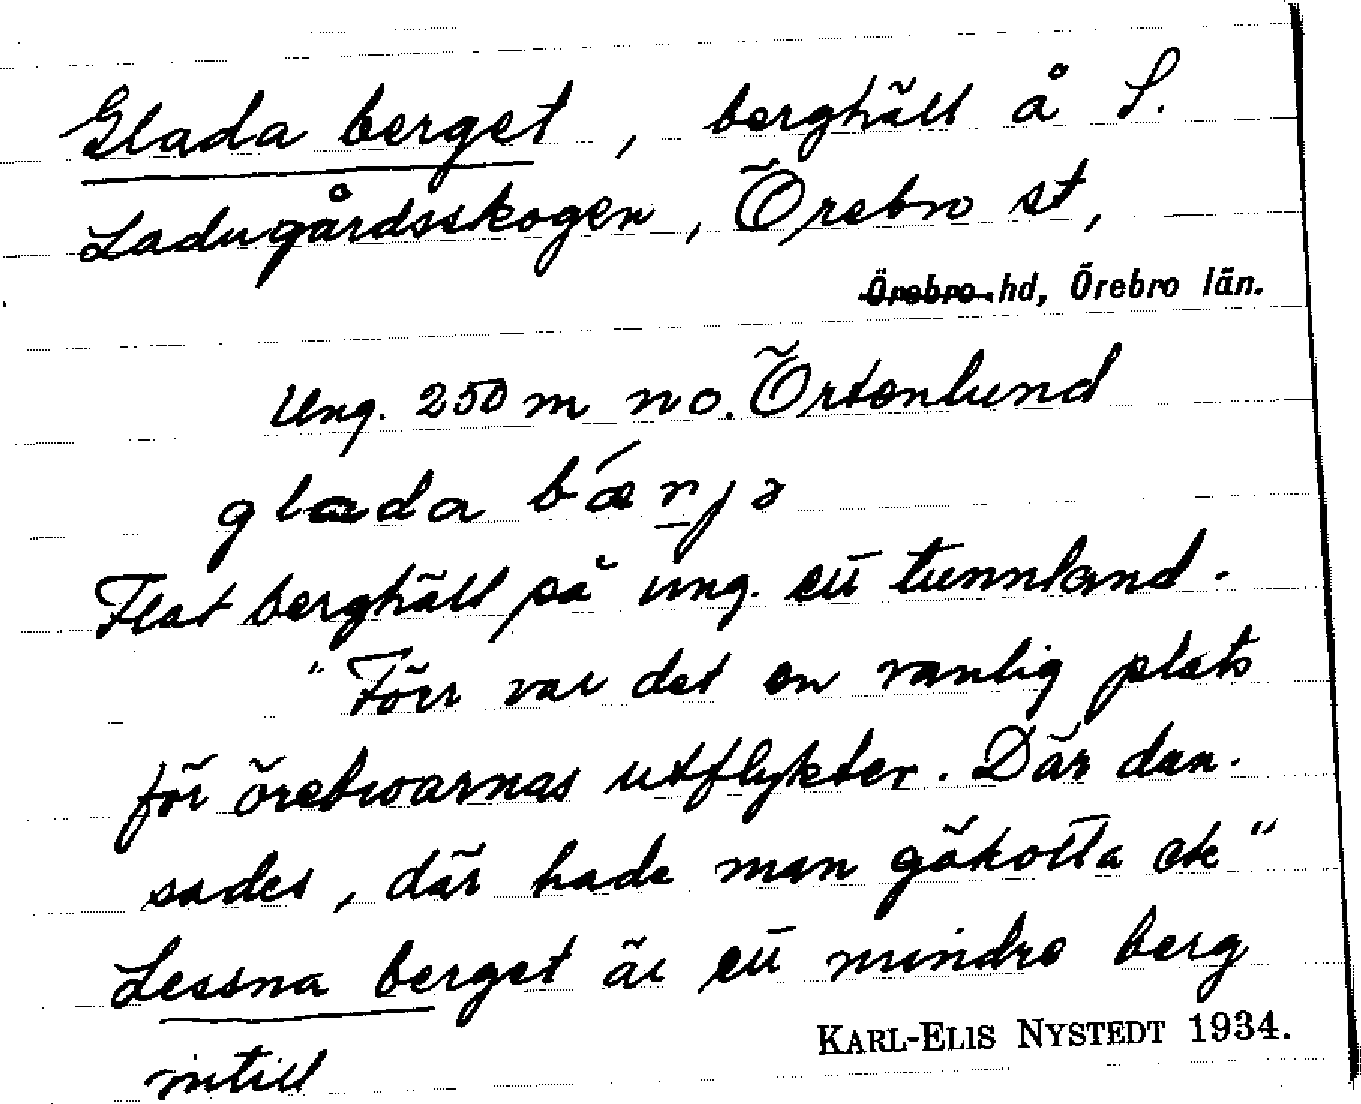 Glada berget, berghäll å S.
Ladugårdsskogen, Örebro st,
Örebro hd, Örebro län.
Ung. 250 m no. Örtenlund
glada bǽrjə
Flat berghäll på ung. ett tunnland.
"Förr var det en vanlig plats
för örebroarnas utflykter. Där dan-
sades, där hade man gökotta etc"
Lessna berget är ett mindre berg
intill
KARL-ELIS NYSTEDT 1934.